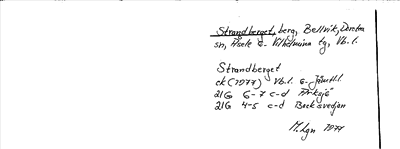 Strandberget, berg, Bellvik, Dorotea
sn, Åsele o. Vilhelmina tg, Vb. l.
Strandberget
ek (1977) Vb. l. o. Jämtl.
21G 6-7 c-d Arksjö
21G 4-5 c-d Backavedjan
M. Lgn 1977